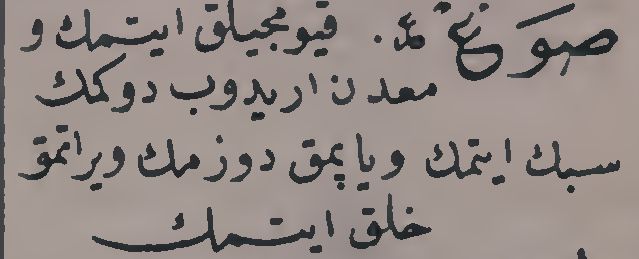 صوغ مد. قيومجيلق ايتمك و
معدن اريدوب دوكمك
سبك ايتمك ويا پمق دوزمك ويراتمق
خلق ايتمك